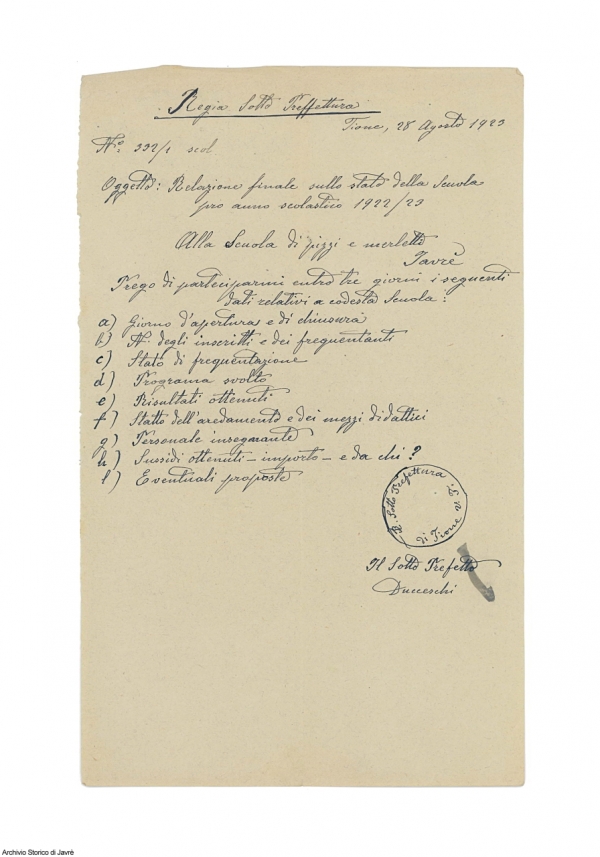 Regia Sotto Preffettura
Tione, 28 Agosto 1923
No: 332/1 scol
Oggetto: Relazione finale sullo stato della Scuola
pro anno scolastico 1922/23
Alla Scuola di pizzi e merletto
Javrè
Prego di parteciparmi entro tre giorni i seguenti
dati relativi a codesta Scuola:
a) Giorno d'apertura e di chiusura
b) N. degli inscritti e dei frequentanti
c) Stato di frequentazione
d) Programa svolto
e) Risultati ottenuti
f) Statto dell'aredamento e dei mezzi didattici
g) Personale insegnante
h) Sussidi ottenuti – importo – e da chi?
l) Eventuali proposte
R. Sotto Prefettura
di Tione
Il Sotto Prefetto
Ducceschi
Archivio Storico di Javrè